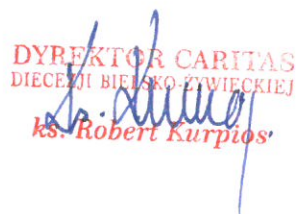 DYREKTOR CARITAS
DIECEZJI BIELSKO-ŻYWIECKIEJ
ks. Robert Kurpios